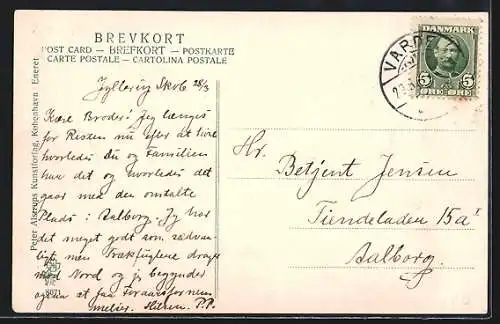 BREVKORT
POST CARD — BREFKORT — POSTKARTE
CARTE POSTALE — CARTOLINA POSTALE
DANMARK
5 5
ØRE ØRE
VARDE
Jyllerup Skole 28/3
Kære Broder! Jeg længes
for Resten nu efter at høre
hvorledes Du og Familien
har det og hvorledes det
gaar med den omtalte
Plads i Aalborg. Jeg har
det meget godt som sædvan-
ligt, men Trækfuglene drage
mod Nord og jeg begynder
ogsaa at faa Foraarsfornem-
melser. Hilsen. P.P.
Hr.
Betjent Jensen
Tiendeladen 15a
Aalborg.
Peter Alstrups Kunstforlag, København Eneret